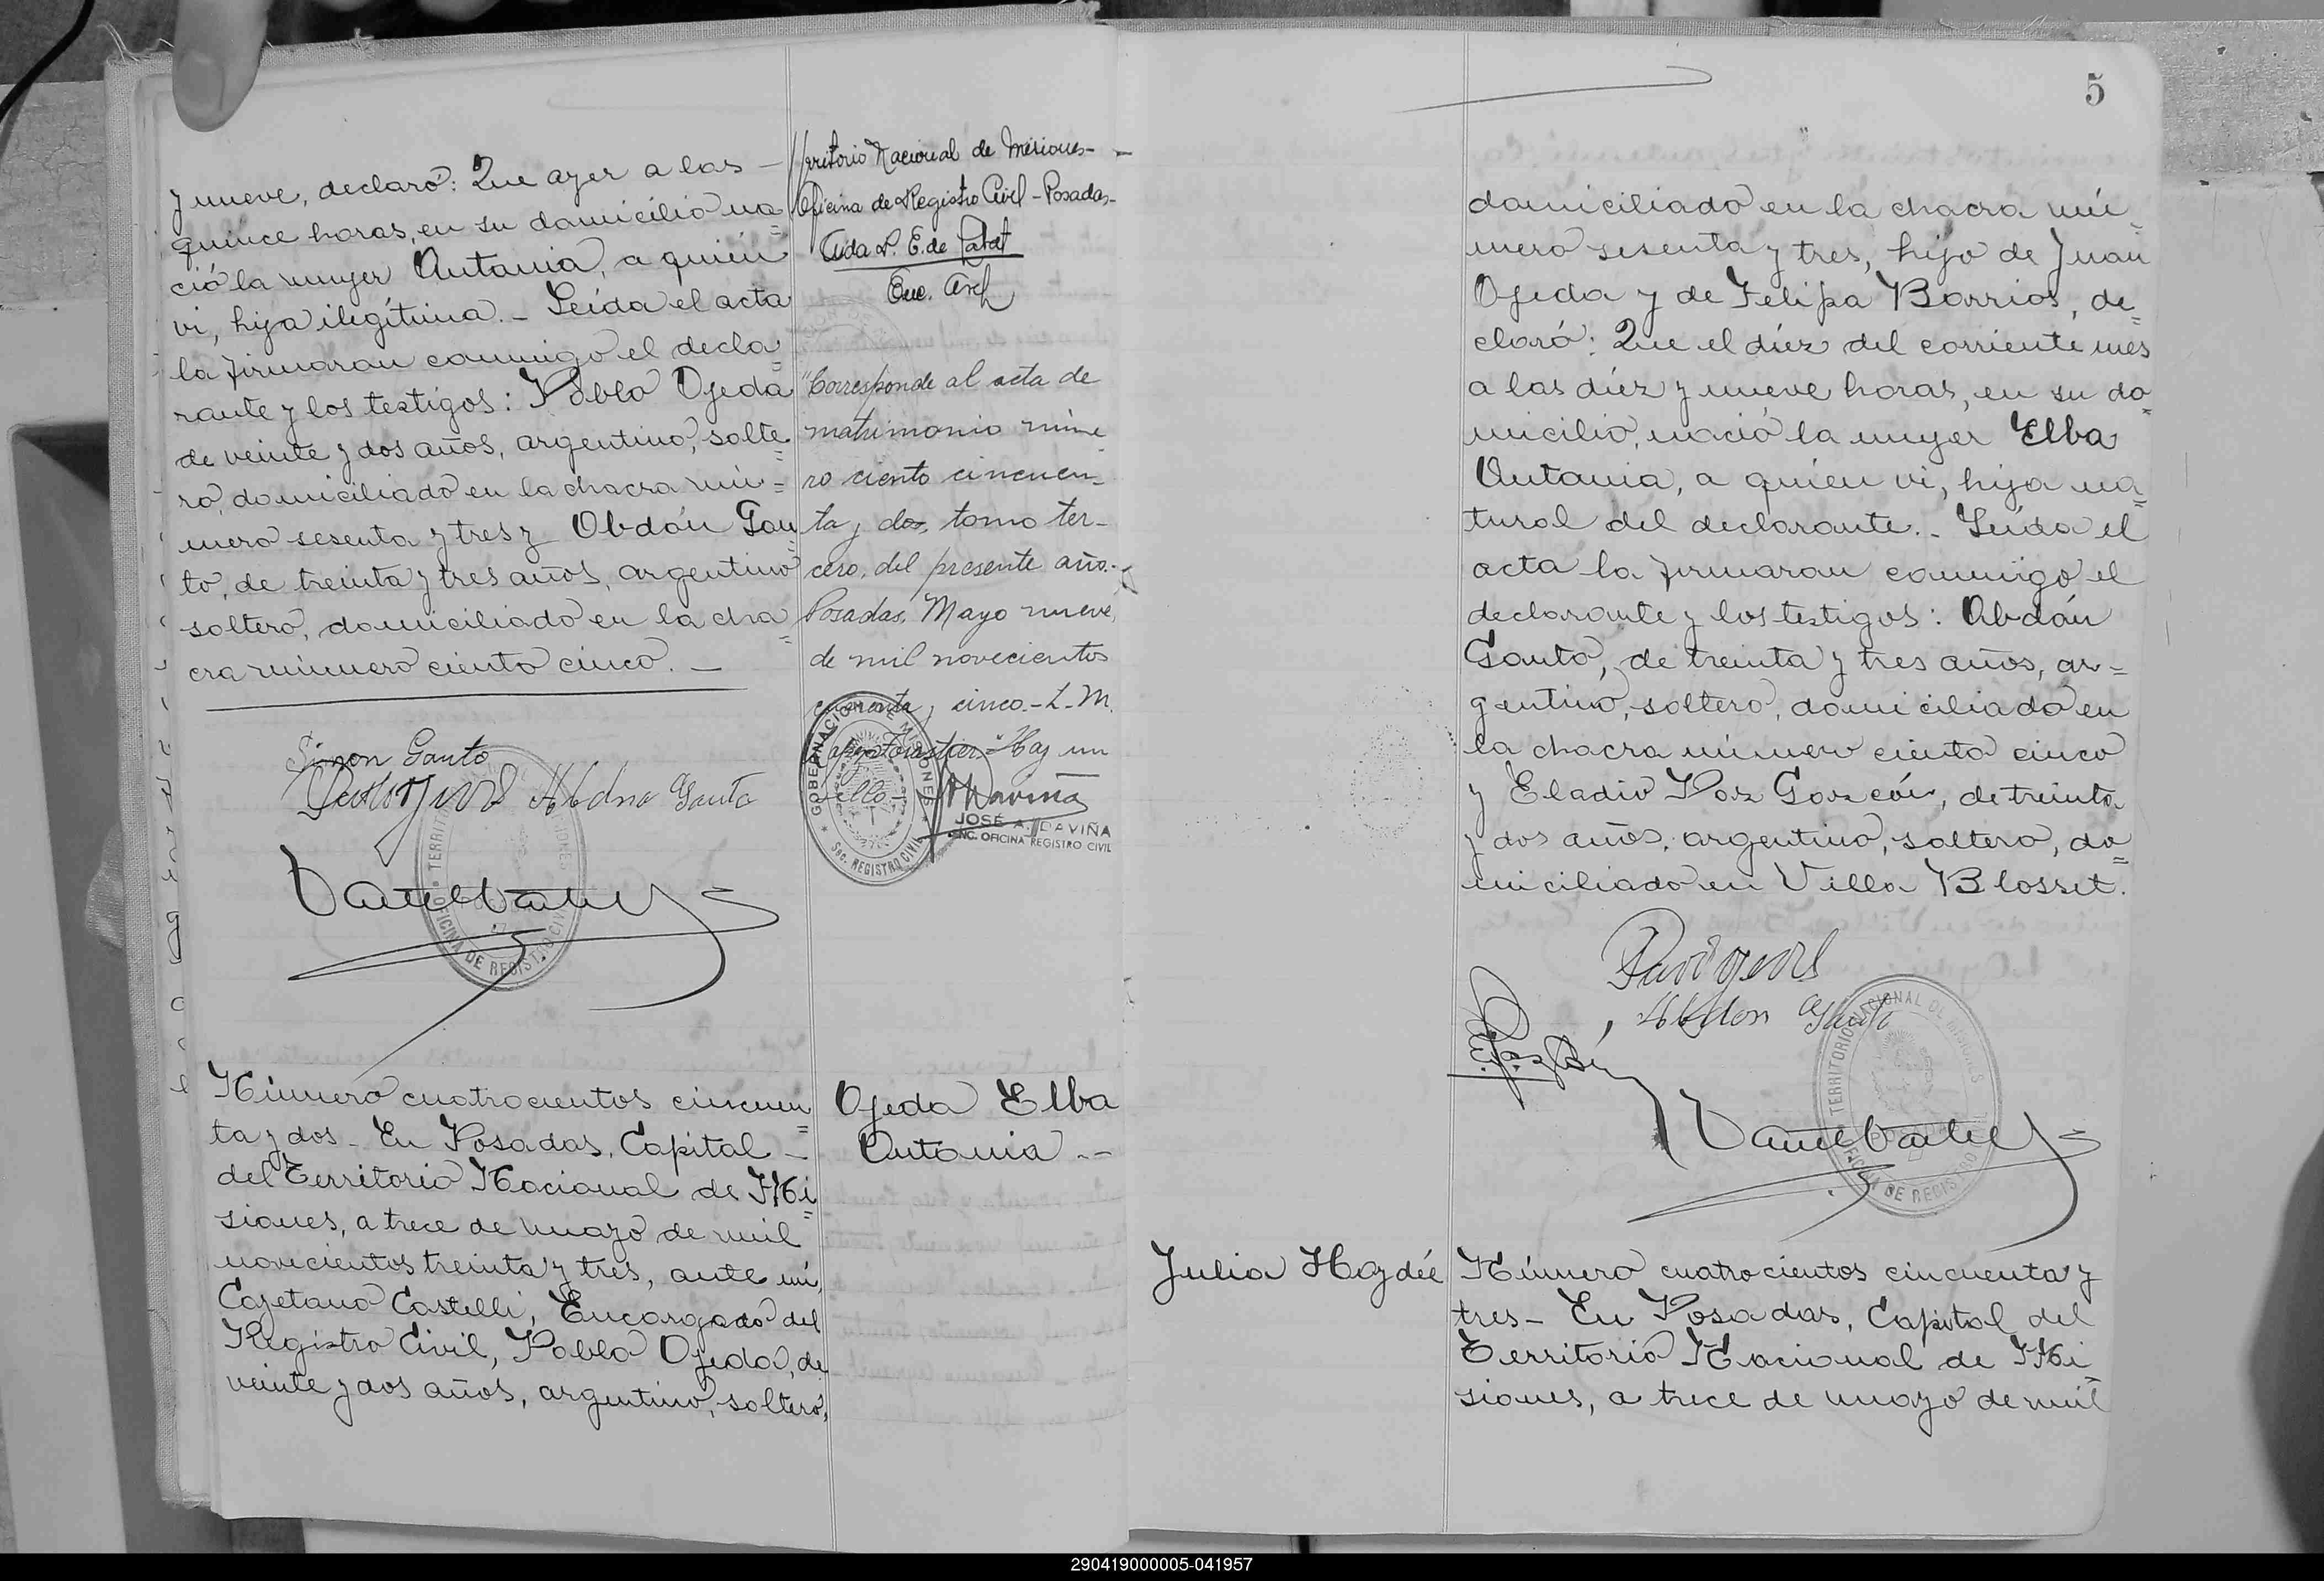 y nueve, declaró: Que ayer a las —
quince horas, en su domicilio na=
ció la mujer Antonia, a quién
vi, hija ilegítima. - Leída el acta
la firmaron conmigo el decla=
rante y los testigos: Pablo Ojeda
de veinte y dos años, argentino, solte=
ro, domiciliado en la chacra nú=
mero sesenta y tres y Abdón Gau=
to, de treinta y tres años, argentino
soltero, domiciliado en la cha=
cra número ciento cinco. —
Simon Gauto
Abdno Gauto
TERRITORIO
OFICINA DE REGISTRO CIVIL
Número cuatrocientos cincuen=
ta y dos - En Posadas, Capital -
del Territorio Nacional de Mi=
siones, a trece de mayo de mil
novecientos treinta y tres, ante mí,
Cayetano Castelli, Encargado del
Registro Civil, Pablo Ojeda, de
veinte y dos años, argentino, soltero,
Territorio Nacional de Misiones -
Oficina de Registro Civil - Posadas -
Enc. Arch
"Corresponde al acta de
matrimonio núme
ro ciento cincuen-
ta y dos, tomo ter-
cero, del presente año.-
Posadas, Mayo nueve,
de mil novecientos
cuarenta y cinco.- L. M.
Hay un
sello.-
GOBERNACION DE MISIONES
SEC. REGISTRO CIVIL
JOSÉ A. DAVIÑA
ENC. OFICINA REGISTRO CIVIL
Ojeda Elba
Antonia --
5
domiciliado en la chacra nú=
mero sesenta y tres, hijo de Juan
Ojeda y de Felipa Barrios, de=
claró: Que el diez del corriente mes
a las diez y nueve horas, en su do=
micilio, nació la mujer Elba
Antonia, a quién vi, hija na=
tural del declarante. - Leída el
acta la firmaron conmigo el
declarante y los testigos: Abdón
Gauto, de treinta y tres años, ar=
gentino, soltero, domiciliado en
la chacra número ciento cinco
y Eladio Paz Garzón, de treinta
y dos años, argentino, soltero, do=
miciliado en Villa Blosset.
Abdon Gauto
TERRITORIO NACIONAL DE MISIONES
OFICINA DE REGISTRO CIVIL
Julia Haydée
Número cuatrocientos cincuenta y
tres - En Posadas, Capital del
Territorio Nacional de Mi=
siones, a trece de mayo de mil
290419000005-041957